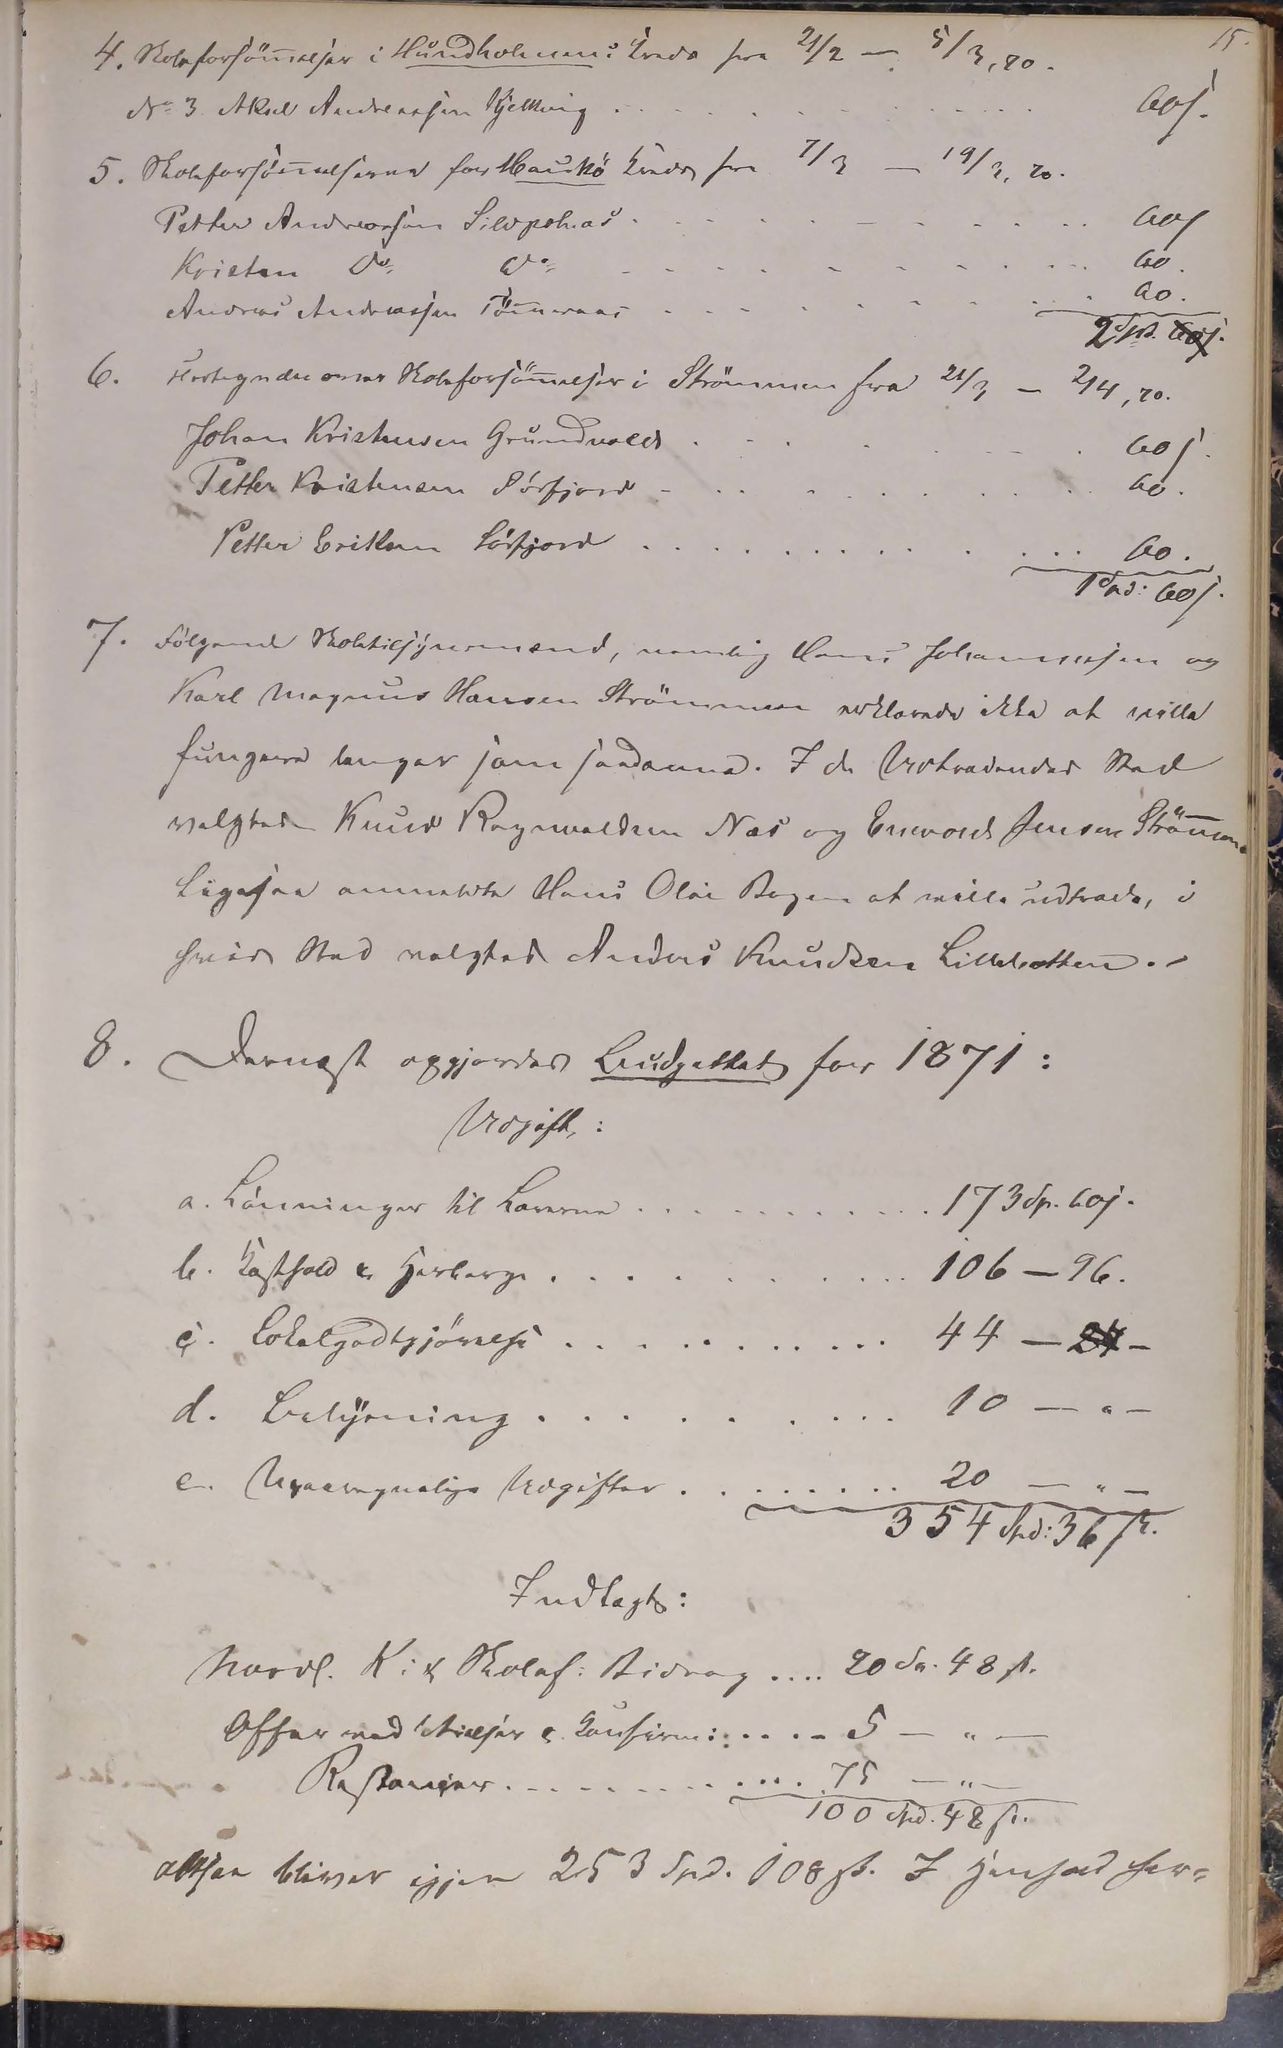 15.
4. Skoleforsömmelser i Hundholmens Kreds fra 21/2 – 5/3, 70.
No 3. Aksel Andreassen Kjelkvig . . . 60 s.
5. Skoleforsömmelserne for Haukö Kreds fra 7/3 – 19/3, 70.
Petter Andreassen . . . 60 s
Kristen Do Do . . . 60.
Andreas Andreassen Tömmeraas . . . 60.
6. Fortegnelse over Skoleforsömmelser i Strömmen fra 21/3 – 2/4, 70.
Johan Kristensen Grundvold . . . 60 s.
Petter Kristensen Sörfjord . . . 60.
Petter Eriksen Sörfjord . . . 60.
1 Spd: 60 s.
7. Fölgende Skoletilsynsmænd, nemlig Hans Johannessen og
Karl Magnus Hansen Strömmen erklærede ikke at ville
fungere længer som saadanne. I de Udtrædendes Sted
valgtes Knud Ragnvaldsen Næs og Enevold Jensen Strömmen.
Ligesaa anmeldte Hans Olai Bogen at ville udtræde, i
hvis Sted valgtes Anders Knudsen Lillebotten. –
8. Dernæst opgjordes Budgettet for 1871:
Udgift,:
a. Lönninger til Lærerne . . . 173 Sp. 60 s.
b. Kosthold & Herberge . . . 106 – 96.
c. Lokalgodtgjörelse . . . 44 – 24 –
d. Belysning . . . 10 – " –
e. Uparegnelige Udgifter . . . 20 – " –
354 Spd: 36 sk.
Indtægt:
Nordl. K: & Skolef: Bidrag .... 20 Sp. 48 sk.
Offer ved Vielser & Konfirm: . . . 5 – " –
Restancer . . . 75 – " –
100 Spd. 48 sk.
altsaa bliver igjen 253 Spd. 108 sk. I Henhold her=